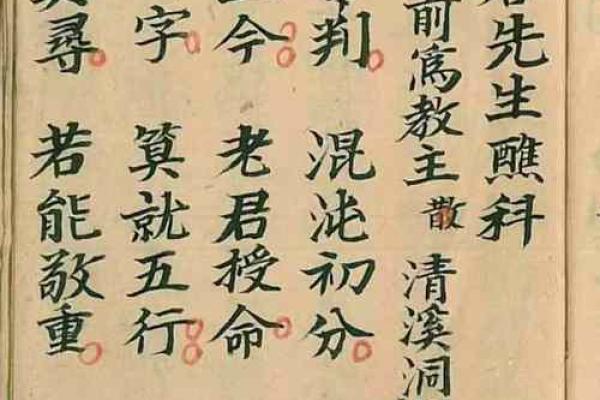 先生醮科
前為教主 散 清溪洞
判 混沌初分
今 老君授命
字 算就五行
尋 若能敬重